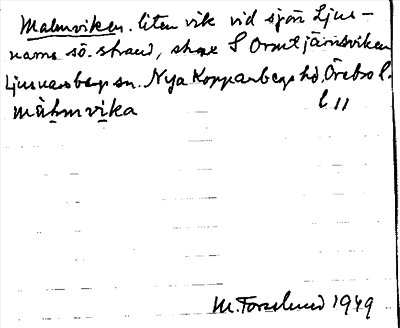 Malmviken. liten vik vid sjön Ljus-
narns sö. strand, strax S Ormtjärnsviken
Ljusnarsbergs sn. Nya Kopparbergs hd, Örebro l.
l 11
mäḥmvika
M. Forslund 1949